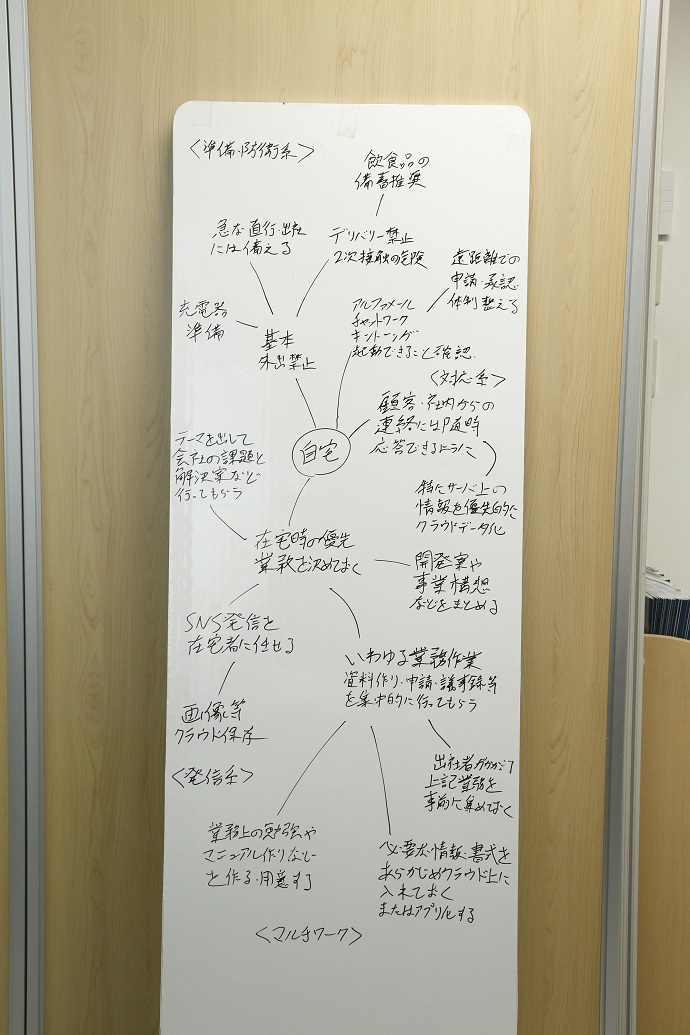 <準備・防衛系>
飲食品の
備蓄推奨
急な直行・出社
には備える
デリバリー禁止
2次接触の危険
遠距離での
申請・承認
体制整える
充電器
準備
基本
外出禁止
アルファメール
チャットワーク
キントーング
起動できること確認
<対応系>
顧客・社内からの
連絡には即時
応答できるように
自宅
テーマを出して
会社の課題と
解決案など
行ってもらう
特にサーバ上の
情報を優先的に
クラウドデータ化
在宅時の優先
業務を決めておく
開発案や
事業構想
などをまとめる
SNS発信を
在宅者に任せる
いわゆる業務作業
資料作り・申請・議事録等
を集中的に行ってもらう
画像等
クラウド保存
<発信系>
出社者が
上記業務を
事前に集めておく
業務上の勉強や
マニュアル作りなど
を作る・用意する
必要な情報・書式を
あらかじめクラウド上に
入れておく
またはアプリ化する
<マルチワーク>